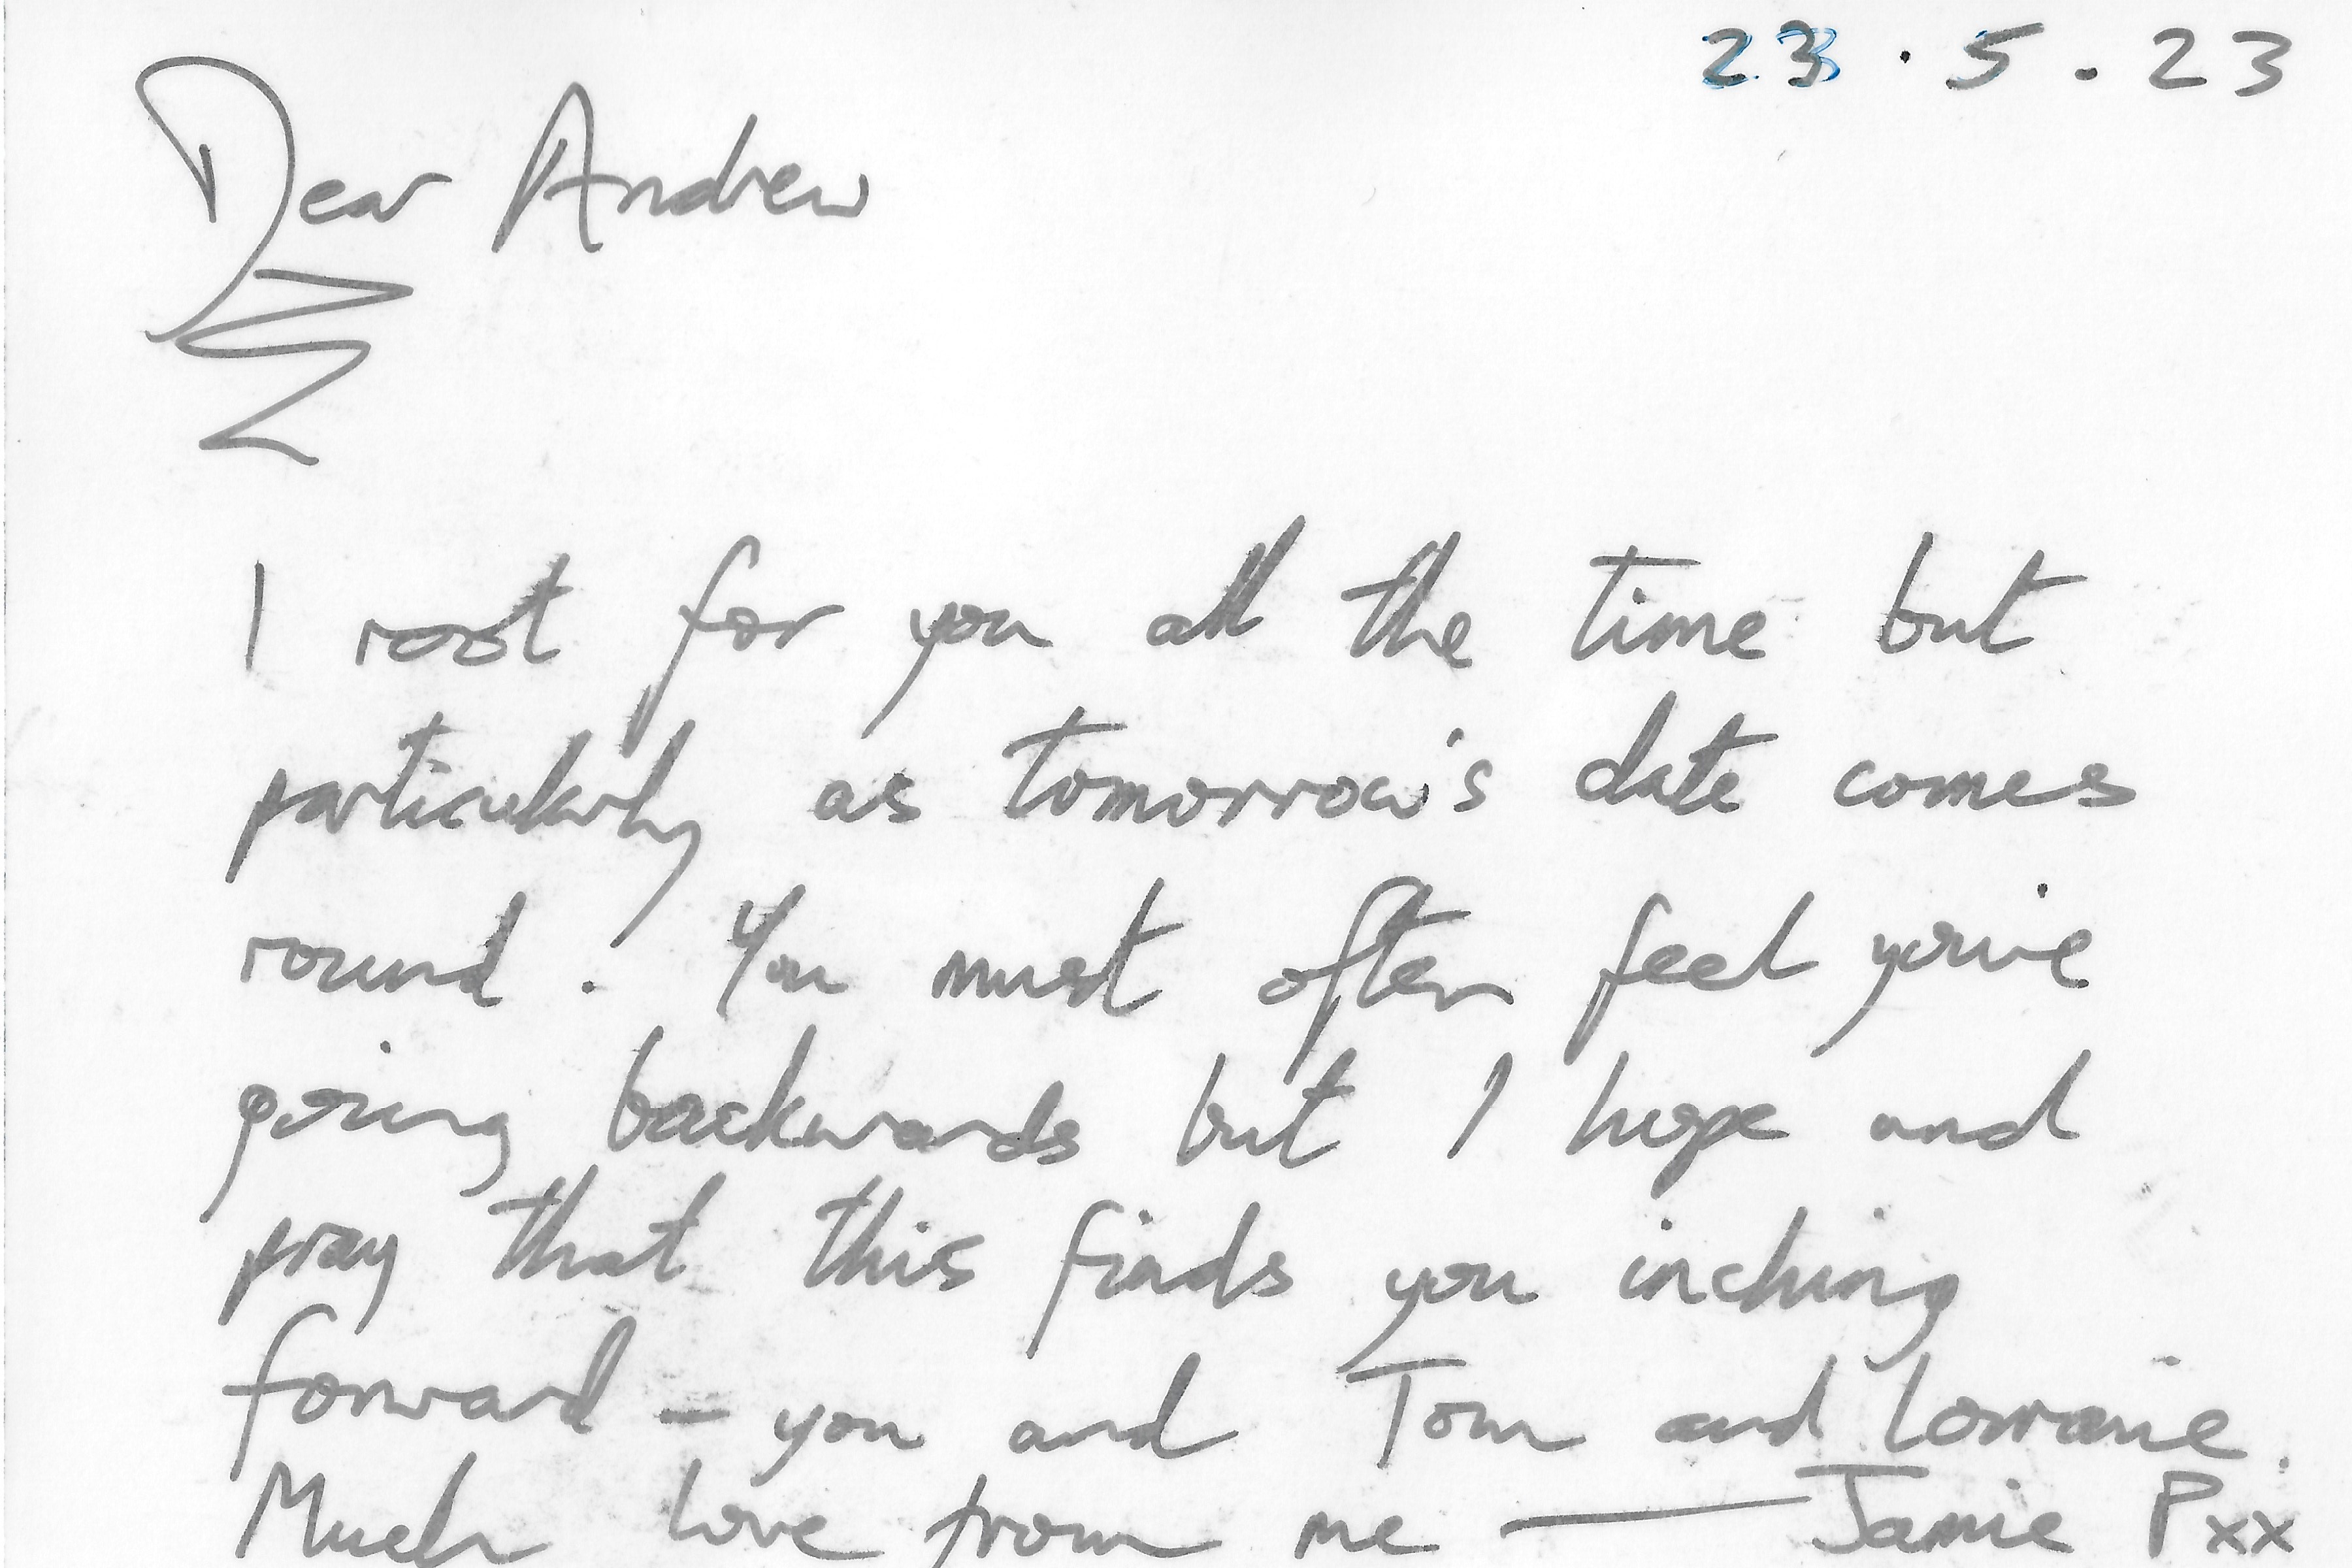 23.5.23
Dear Andrew
I root for you all the time but
particularly as tomorrow's date comes
round. You must often feel you're
going backwards but I hope and
pray that this finds you inching
forward - you and Tom and Lorraine.
Much love from me — Jamie P xx